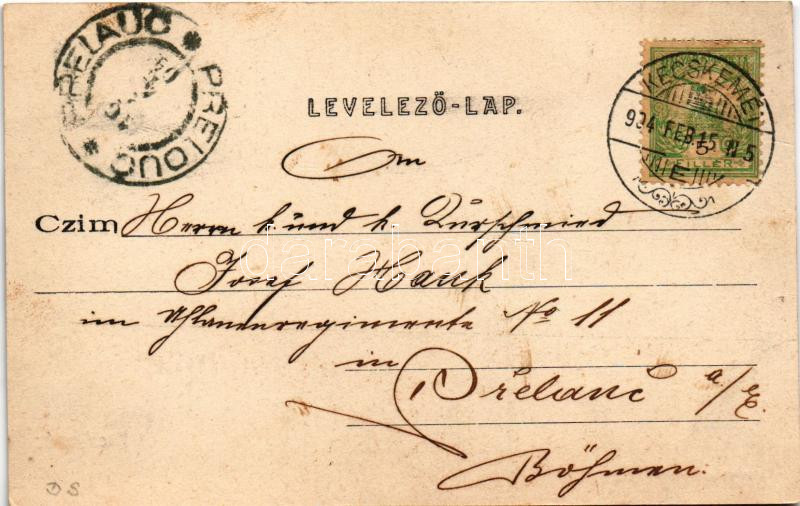 PRELAUC * PRELOUČ *
LEVELEZŐ-LAP.
KECSKEMÉT
904 FEB.15. N5
5
FILLÉR
E
An
Czim Herrn k und k Kurschmied
Josef Hauk
im Uhlanenregimente No 11
in
Přelauč a/E.
Böhmen.
darabanth
DS